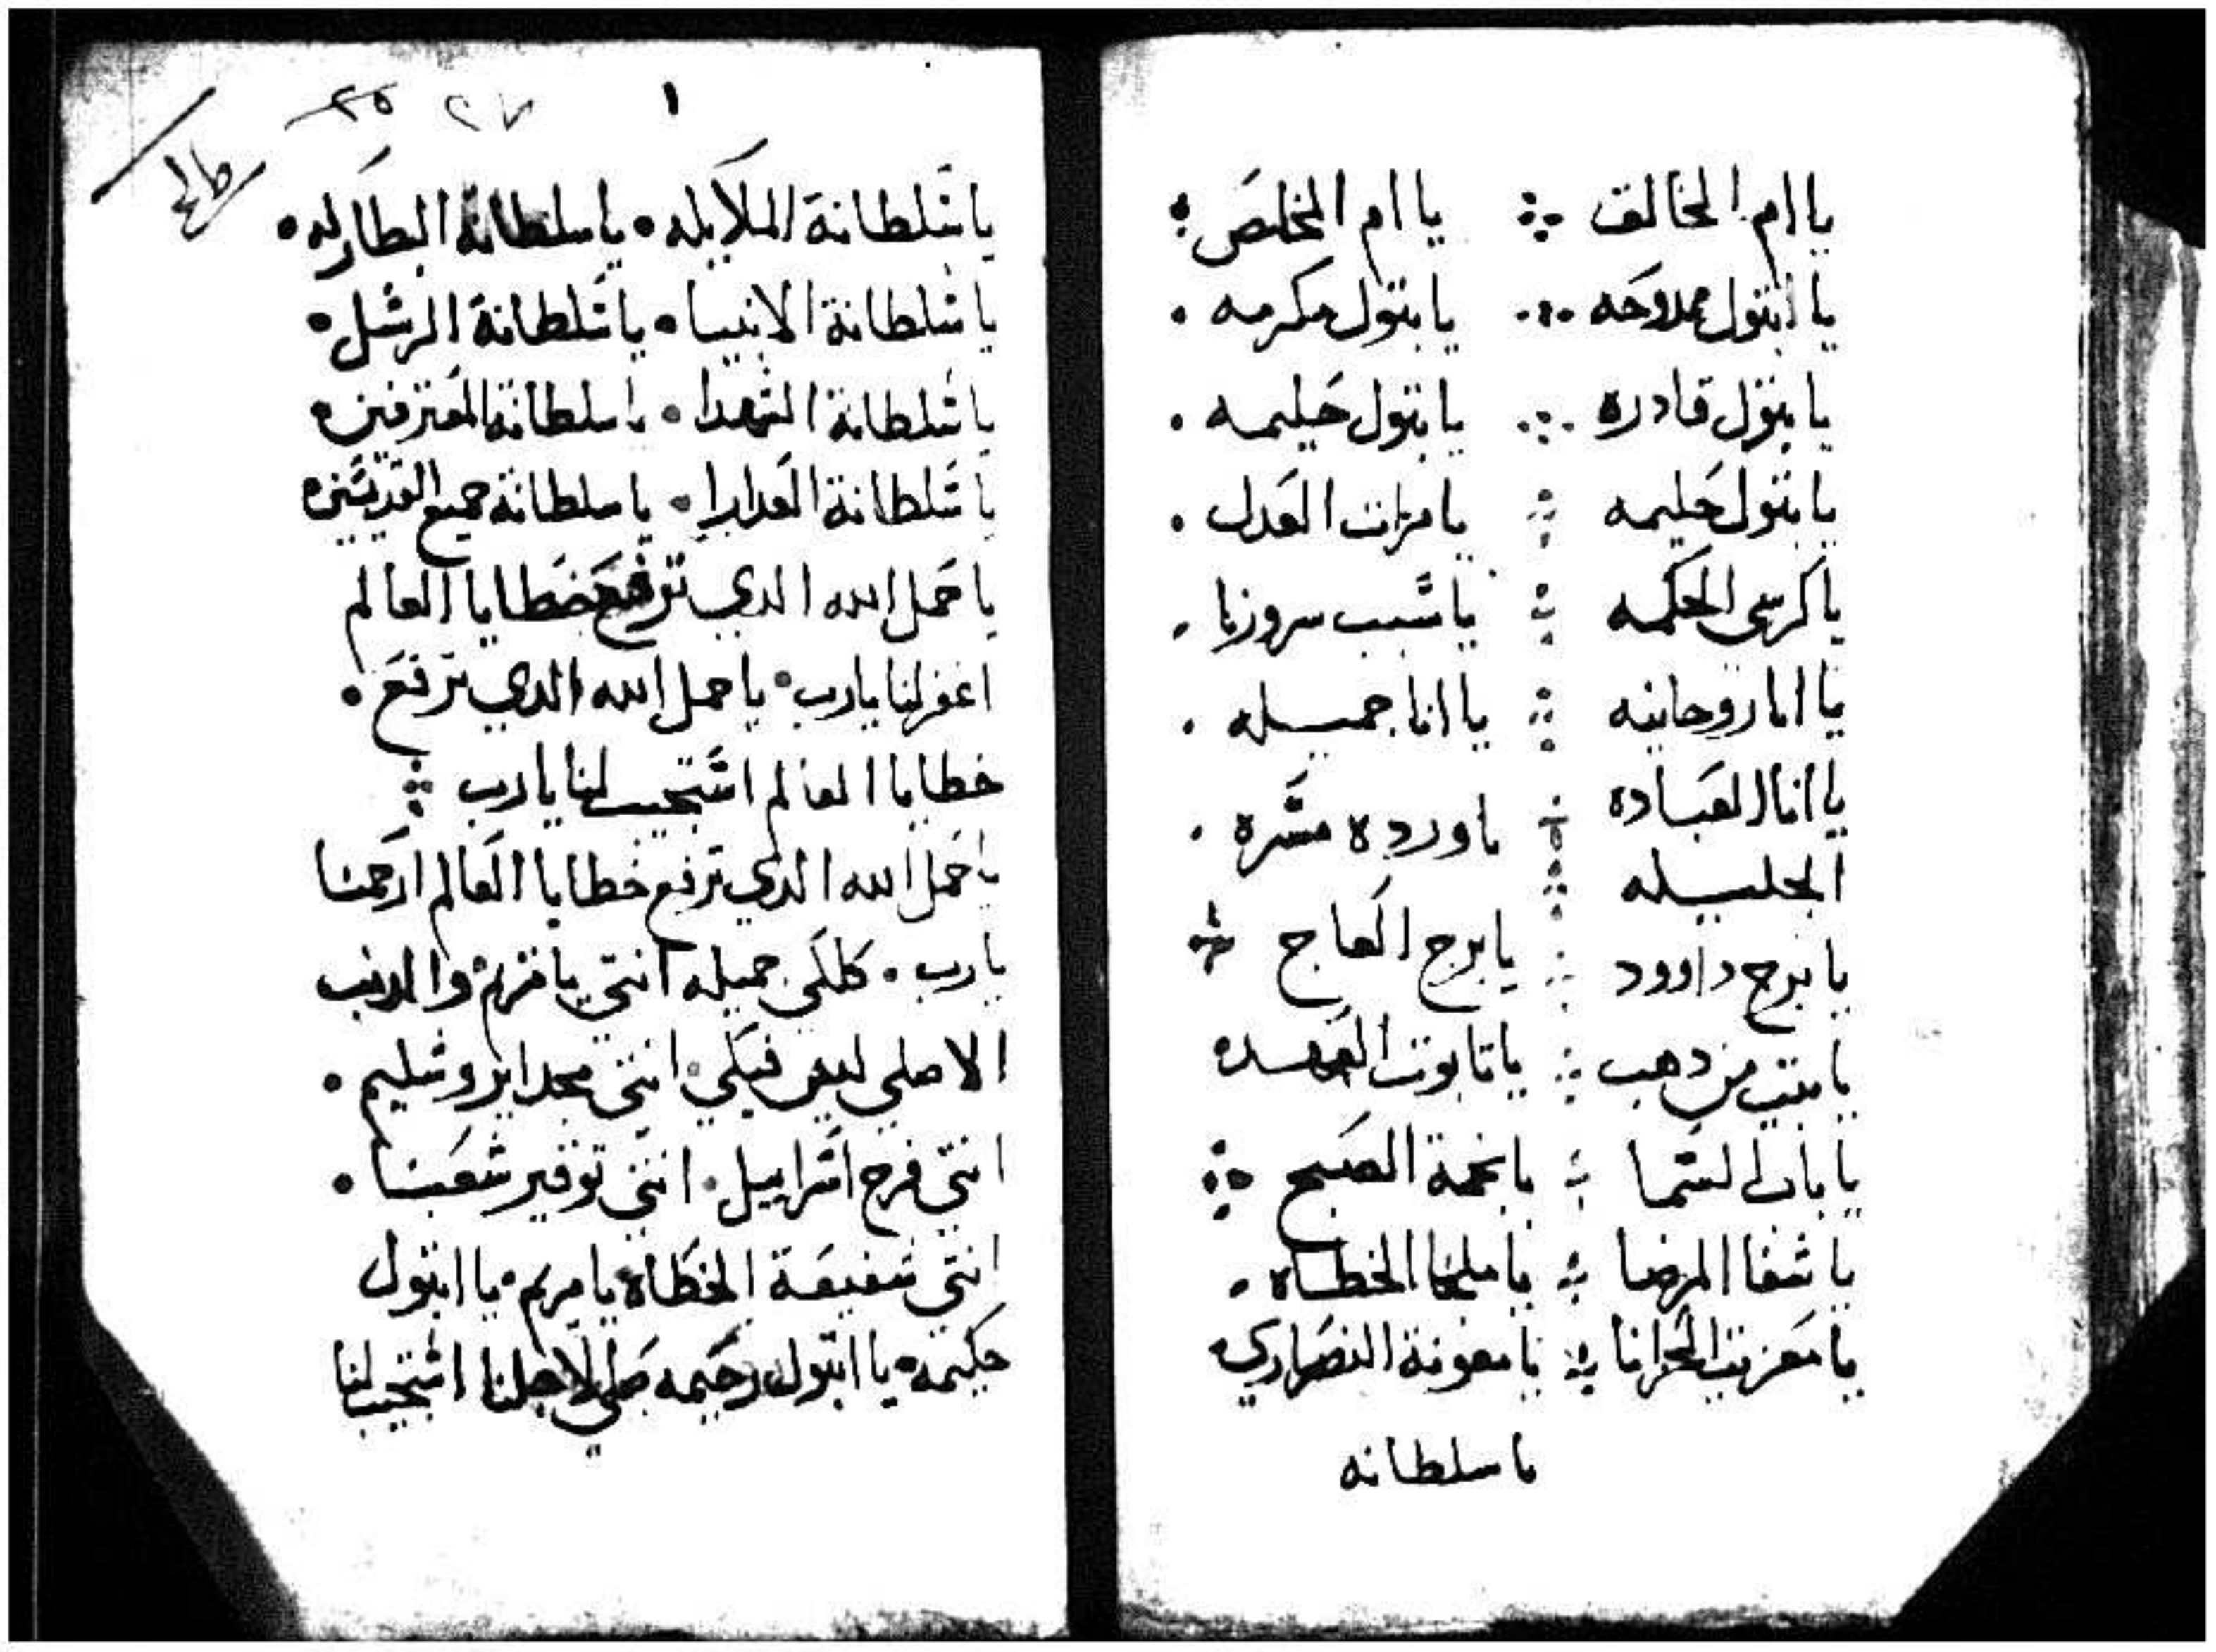 يا ام الخالق ܀ يا ام المخلص
يا ابتول ممدوحه ܀ يا بتول مكرمه
يا بتول قادره ܀ يا بتول حليمه
يا بتول حليمه ܀ يا مرات العدل
يا كرسي الحكمه ܀ يا سبب سرورنا
يا انا روحانيه ܀ يا انا جميله
يا انا العباده ܀ يا ورده مشره
الجليله
يا برج داوود ܀ يا برج العاج
يا بيت من دهب ܀ يا تابوت العهد
يا باب السما ܀ يا نجمة الصبح
يا شفا المرضا ܀ يا ملجا الخطاه
يا معزيت الحزانا ܀ يا معونة النصاري
يا سلطانه
٢٥ ٢٧ ١
يا سلطانة الملايكه • يا سلطانة البطاركه •
يا سلطانة الانبيا • يا سلطانة الرسل •
يا سلطانة الشهدا • يا سلطانة المعترفين •
يا سلطانة العدارا • يا سلطانة جميع القديسين •
يا حمل الله الدي ترفع خطايا العالم
اغفر لنا يا رب • يا حمل الله الدي ترفع •
خطايا العالم استجيب لنا يا رب ܀
يا حمل الله الدي ترفع خطايا العالم ارحمنا
يا رب • كلكي جميله انتي يا مريم والدنب
الاصلي ليس فيكي • انتي مجد ايروشليم •
انتي فرح اسراييل • انتي توقير شعبنا •
انتي شفيعة الخطاه يا مريم • يا ابتول
حكيمه • يا ابتول رحيمه صلي لاجلنا استجيب لنا